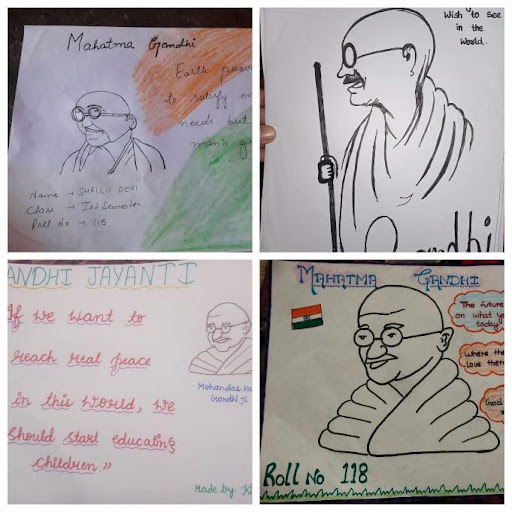 Mahatma Gandhi
Earth
to satisfy
needs but
man's
Name → SHALLU DEVI
Class → Ist Semester
Roll No → 115
Wish to See
in the
World.
GANDHI JAYANTI
If we want to
reach real peace
in this world, we
should start educating
children."
Mohandas
Gandhi Ji
Made by
MAHATMA GANDHI
The future
on what
today
Where the
love there
God
Roll No 118